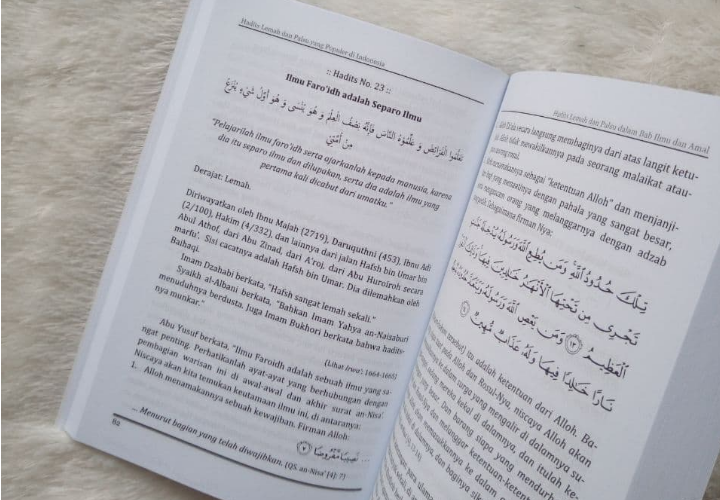 Hadits Lemah dan Palsu yang Populer di Indonesia
:: Hadits No. 23 ::
Ilmu Faro'idh adalah Separo Ilmu
تَعَلَّمُوا الْفَرَائِضَ وَ عَلِّمُوْهُ النَّاسَ فَإِنَّهُ نِصْفُ الْعِلْمِ وَ هُوَ يُنْسَى وَ هُوَ أَوَّلُ شَيْءٍ يُنْزَعُ
مِنْ أُمَّتِيْ
"Pelajarilah ilmu faro'idh serta ajarkanlah kepada manusia, karena
dia itu separo ilmu dan dilupakan, serta dia adalah ilmu yang
pertama kali dicabut dari umatku."
Derajat: Lemah.
Diriwayatkan oleh Ibnu Majah (2719), Daruquthni (453), Ibnu Adi
(2/100), Hakim (4/332), dan lainnya dari jalan Hafsh bin Umar bin
Abul Athof, dari Abu Zinad, dari A'roj, dari Abu Huroiroh secara
marfu'. Sisi cacatnya adalah Hafsh bin Umar. Dia dilemahkan oleh
Baihaqi.
Imam Dzahabi berkata, "Hafsh sangat lemah sekali."
Syaikh al-Albani berkata, "Bahkan Imam Yahya an-Naisaburi
menuduhnya berdusta. Juga Imam Bukhori berkata bahwa hadits-
nya munkar."
(Lihat Irwa': 1664-1665)
Abu Yusuf berkata, "Ilmu Faroidh adalah sebuah ilmu yang sa-
ngat penting. Perhatikanlah ayat-ayat yang berhubungan dengan
pembagian warisan ini di awal-awal dan akhir surat an-Nisa'.
Niscaya akan kita temukan keutamaan ilmu ini, di antaranya:
1. Alloh menamakannya sebuah kewajiban. Firman Alloh:
... نَصِيبًا مَّفْرُوضًا ٧
... Menurut bagian yang telah diwajibkan. (QS. an-Nisa' [4]: 7)
82
Hadits Lemah dan Palsu dalam Bab Ilmu dan Amal
secara langsung membaginya dari atas langit ketu-
tidak mewakilkannya pada seorang malaikat atau-
sebagai "ketentuan Alloh" dan menjanji-
yang mentaatinya dengan pahala yang sangat besar,
orang yang melanggarnya dengan adzab
Sebagaimana firman Nya:
تِلْكَ حُدُودُ اللَّهِ وَمَن يُطِعِ اللَّهَ وَرَسُولَهُ يُدْخِلْهُ جَنَّتٍ
تَجْرِى مِن تَحْتِهَا الْأَنْهَرُ خَلِدِينَ فِيهَا وَذَلِكَ الْفَوْزُ
الْعَظِيمُ ١٣ وَمَن يَعْصِ اللَّهَ وَرَسُولَهُ وَيَتَعَدَّ
نَارًا خَلِدًا فِيهَا وَلَهُ عَذَابٌ مُّهِينٌ ١٤
itu adalah ketentuan dari Alloh. Ba-
pada Alloh dan Rosul-Nya, niscaya Alloh akan
dalam surga yang mengalir di dalamnya su-
sedang mereka kekal di dalamnya, dan itulah ke-
besar. Dan barang siapa yang mendurhakai
dan melanggar ketentuan-ketentuan
memasukkannya ke dalam
dalamnya, dan baginya sik-